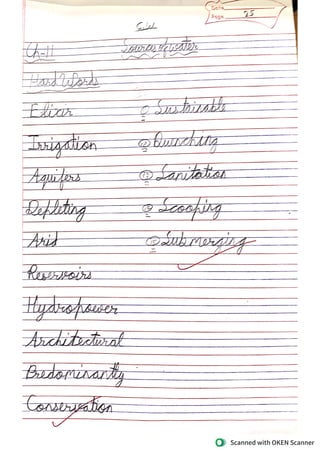 Date
Page 25
C.W
Ch-11 Sources of water
Hard Words
Elixir Sustainable
Irrigation Quenching
Aquifers Sanitation
Depleting Scooping
Arid Submerging
Reservoirs
Hydropower
Architectural
Predominantly
Conservation
Scanned with OKEN Scanner